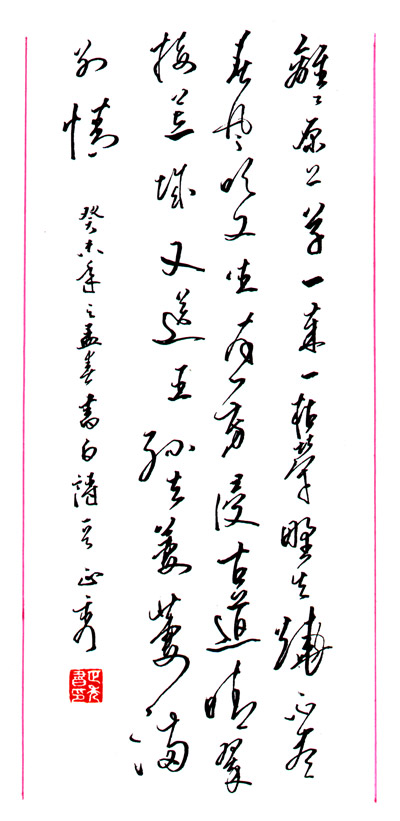 離〻原上草一歲一枯榮野火燒不盡
春風吹又生遠芳侵古道晴翠
接荒城又送王孫去萋萋滿
別情
癸未年之孟春書白詩一首正秀
正秀書印